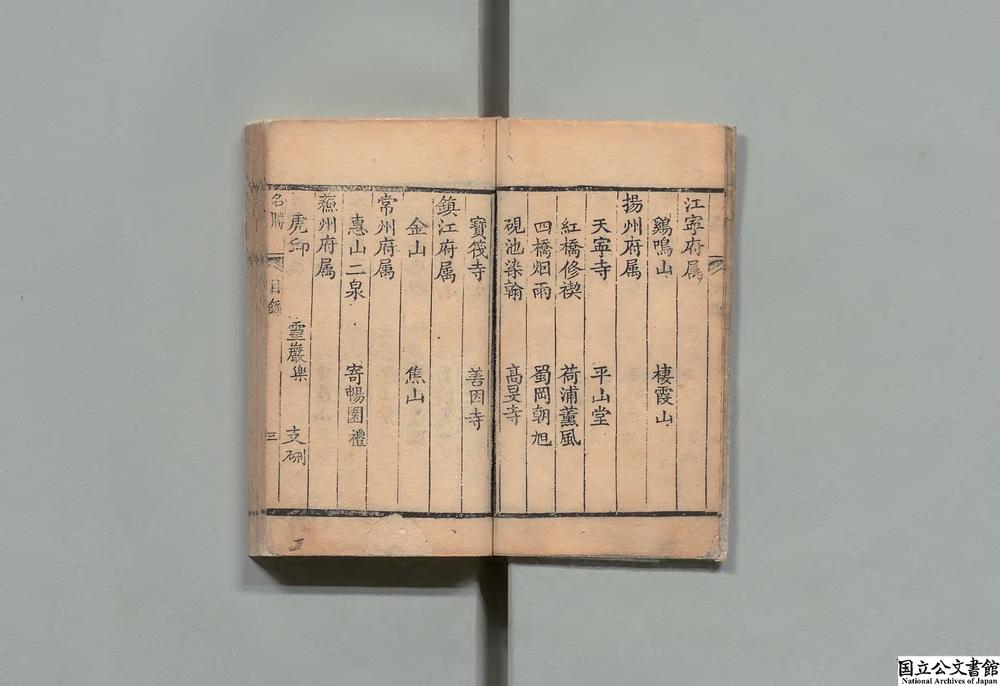 江寧府属
鷄鳴山 棲霞山
揚州府属
天寧寺 平山堂
紅橋修禊 荷浦薰風
四橋烟雨 蜀岡朝旭
硯池染翰 高旻寺
寳筏寺 善因寺
鎮江府属
金山 焦山
常州府属
惠山二泉 寄暢園禮
蘇州府属
虎邱 靈巖 支硎
名勝 目錄 三
国立公文書館
National Archives of Japan